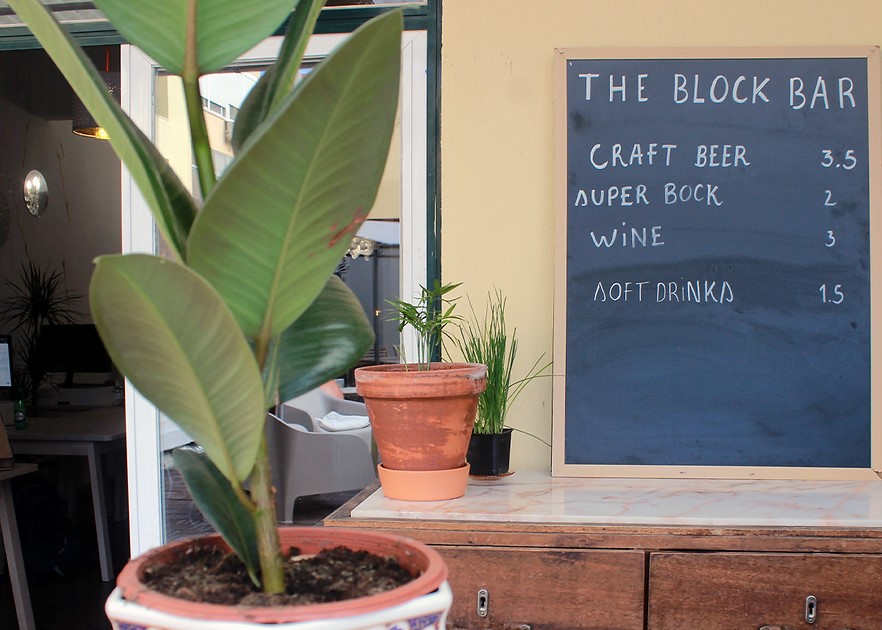 THE BLOCK BAR
CRAFT BEER 3.5
SUPER BOCK 2
WiNE 3
SOFT DRiNKS 1.5